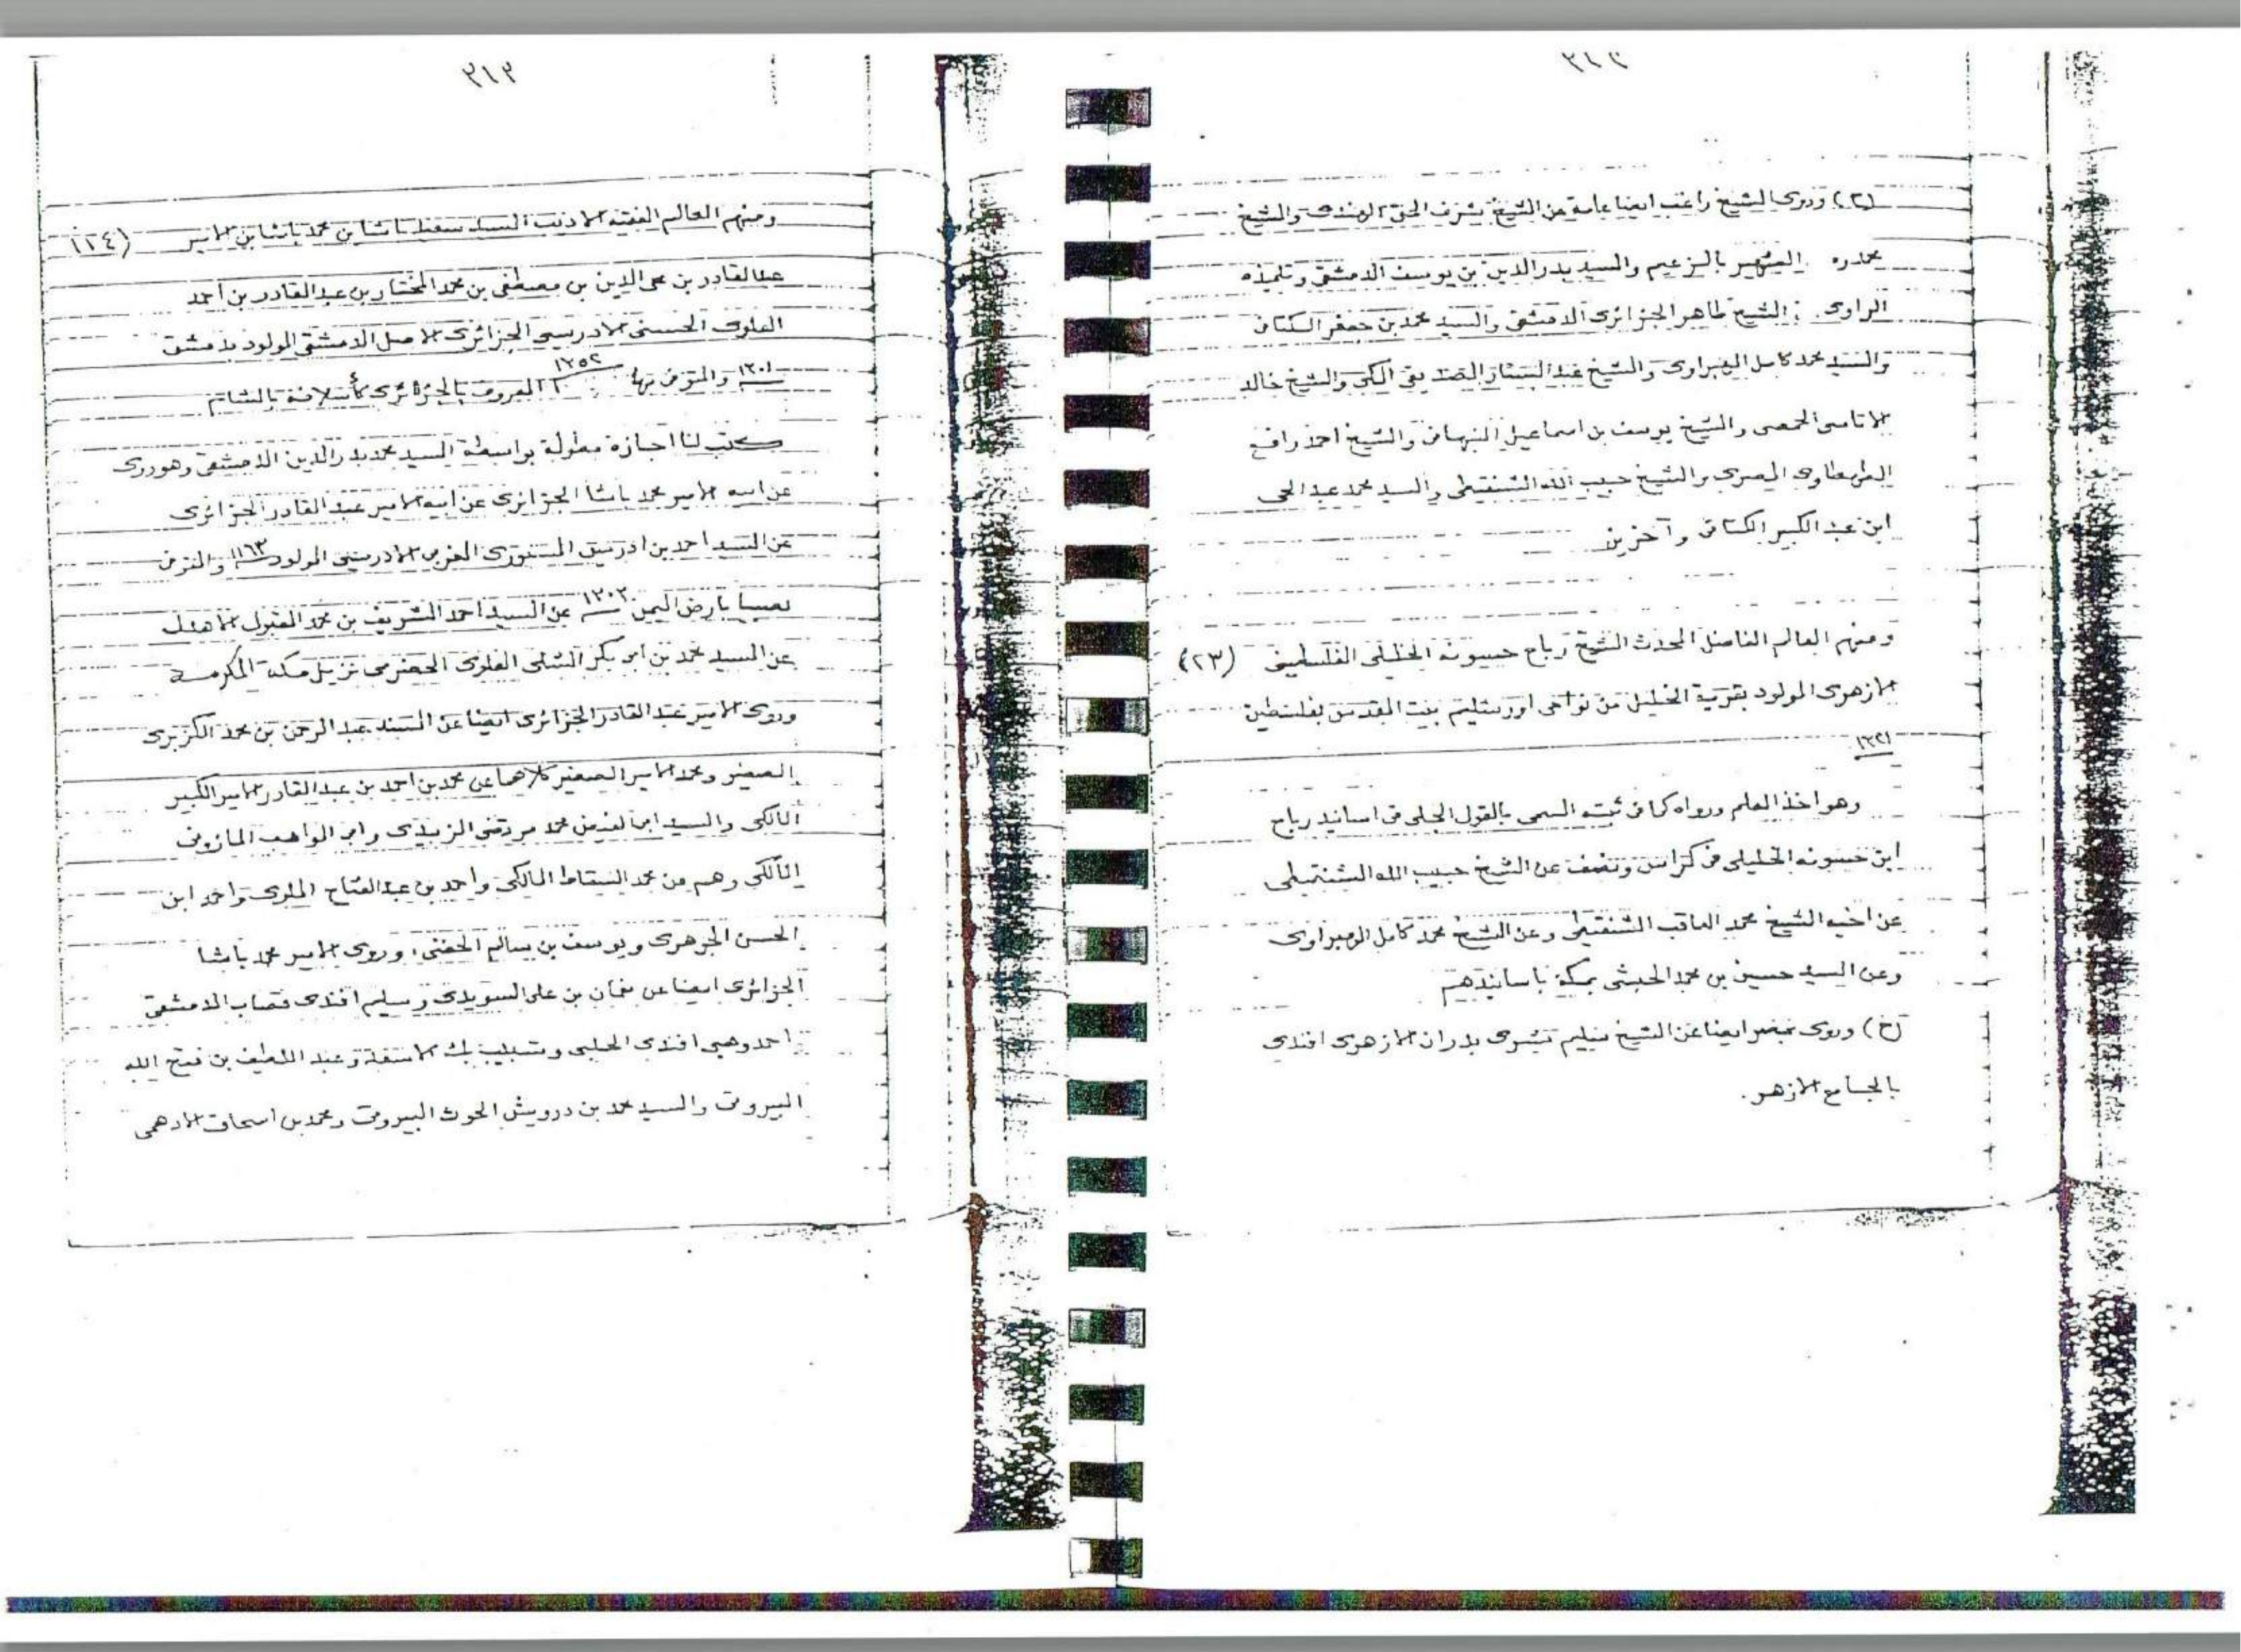 (٢) وروى الشيخ راغب ايضا عامة عن الشيخ شرف الحق الهندى والشيخ
الشهير بالزعيم والسيد بدر الدين بن يوسف الدمشقى وتلميذه
الراوى الشيخ طاهر الجزائرى الدمشقى والسيد محمد بن جعفر الكتانى
والسيد محمد كامل الهبراوى والشيخ عبد الستار الصديقى المكى والشيخ خالد
الاتاسى الحمصى والشيخ يوسف بن اسماعيل النبهانى والشيخ احمد رافع
الطهطاوى المصرى والشيخ حبيب الله الشنقيطى والسيد محمد عبد الحى
ابن عبد الكبير الكتانى وآخرين
ومنهم العالم الفاضل المحدث الشيخ رباح حسونه الخليلى الفلسطينى (٢٣)
الازهرى المولود بقرية الخليل من نواحى اورشليم بيت المقدس بفلسطين
١٣٢١
وهو اخذ العلم ورواه كما فى ثبته المسمى بالقول الجلى فى اسانيد رباح
ابن حسونه الخليلى فى كراس ونصف عن الشيخ حبيب الله الشنقيطى
عن اخيه الشيخ محمد العاقب الشنقيطى وعن الشيخ محمد كامل الهبراوى
وعن السيد حسين بن محمد الحبشى بمكة باسانيدهم
(ح) وروى بمصر ايضا عن الشيخ سليم بدران الازهرى افندى
بالجامع الازهر.
٣١٣
ومنهم العالم الفقيه الاديب السيد سعيد باشا بن محمد باشا بن الامير (١٢٤)
عبد القادر بن محى الدين بن مصطفى بن محمد المختار بن عبد القادر بن احمد
العلوى الحسنى الادريسى الجزائرى الاصل الدمشقى المولود بدمشق
١٣٠١ والمتوفى بها ١٣٥٢ المعروف بالجزائرى كأسلافه بالشام
كتب لنا اجازة مطولة بواسطة السيد محمد بدر الدين الدمشقى وهو روى
عن ابيه الامير محمد باشا الجزائرى عن ابيه الامير عبد القادر الجزائرى
عن السيد احمد بن ادريس المغربى الادريسى المولود ١١٦٣ والمتوفى
بصبيا بارض اليمن عن السيد احمد الشريف بن محمد المقبول الاهدل
عن السيد محمد بن ابى بكر الشلى العلوى الحضرمى نزيل مكة المكرمة
وروى الامير عبد القادر الجزائرى ايضا عن السيد عبد الرحمن بن محمد الكزبرى
الصغير ومحمد الامير الصغير كلاهما عن محمد بن احمد بن عبد القادر الامير الكبير
المالكى والسيد ابى الفيض محمد مرتضى الزبيدى وابى المواهب المازونى
المالكى وهم من محمد السقاط المالكى واحمد بن عبد الفتاح الملوى واحمد ابن
الحسن الجوهرى ويوسف بن سالم الحفنى، وروى الامير محمد باشا
الجزائرى ايضا عن نعمان بن على السويدى وسليم افندى قصاب الدمشقى
احمد وهبى افندى الحلبى وشبيب بك الاسعد وعبد اللطيف بن فتح الله
البيروتى والسيد محمد بن درويش الحوت البيروتى ومحمد بن اسحاق الادهمى